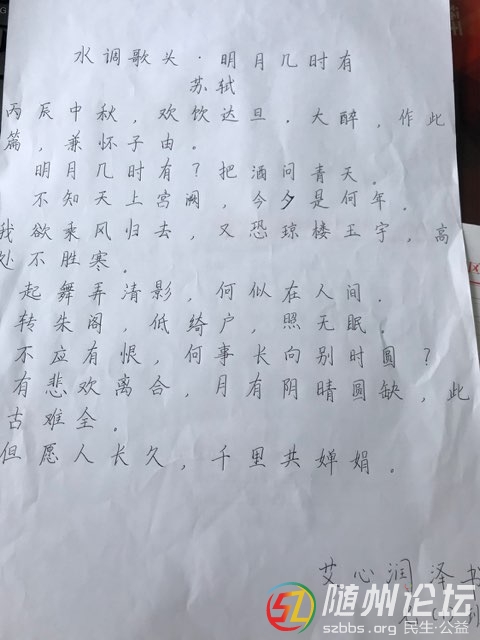 水调歌头·明月几时有
苏轼
丙辰中秋，欢饮达旦．大醉，作此
篇，兼怀子由。
明月几时有？把酒问青天。
不知天上宫阙，今夕是何年．
我欲乘风归去，又恐琼楼玉宇，高
处不胜寒。
起舞弄清影，何似在人间．
转朱阁，低绮户，照无眠．
不应有恨，何事长向别时圆？
有悲欢离合，月有阴晴圆缺，此
古难全。
但愿人长久，千里共婵娟．
艾心润泽书
随州论坛
szbbs.org 民生·公益